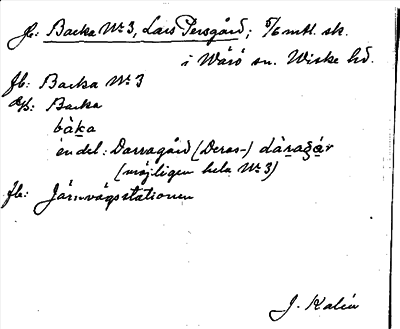 fb: Backa Nr 3, Lars Persgård; 5/6 mtl. sk.
i Värö sn. Viske hd.
fb: Backa Nr 3
dp: Backa
bàka
en del: Darragård (Deras-) dàragár
(möjligen hela Nr 3)
fb: Järnvägsstationen
J. Kalén